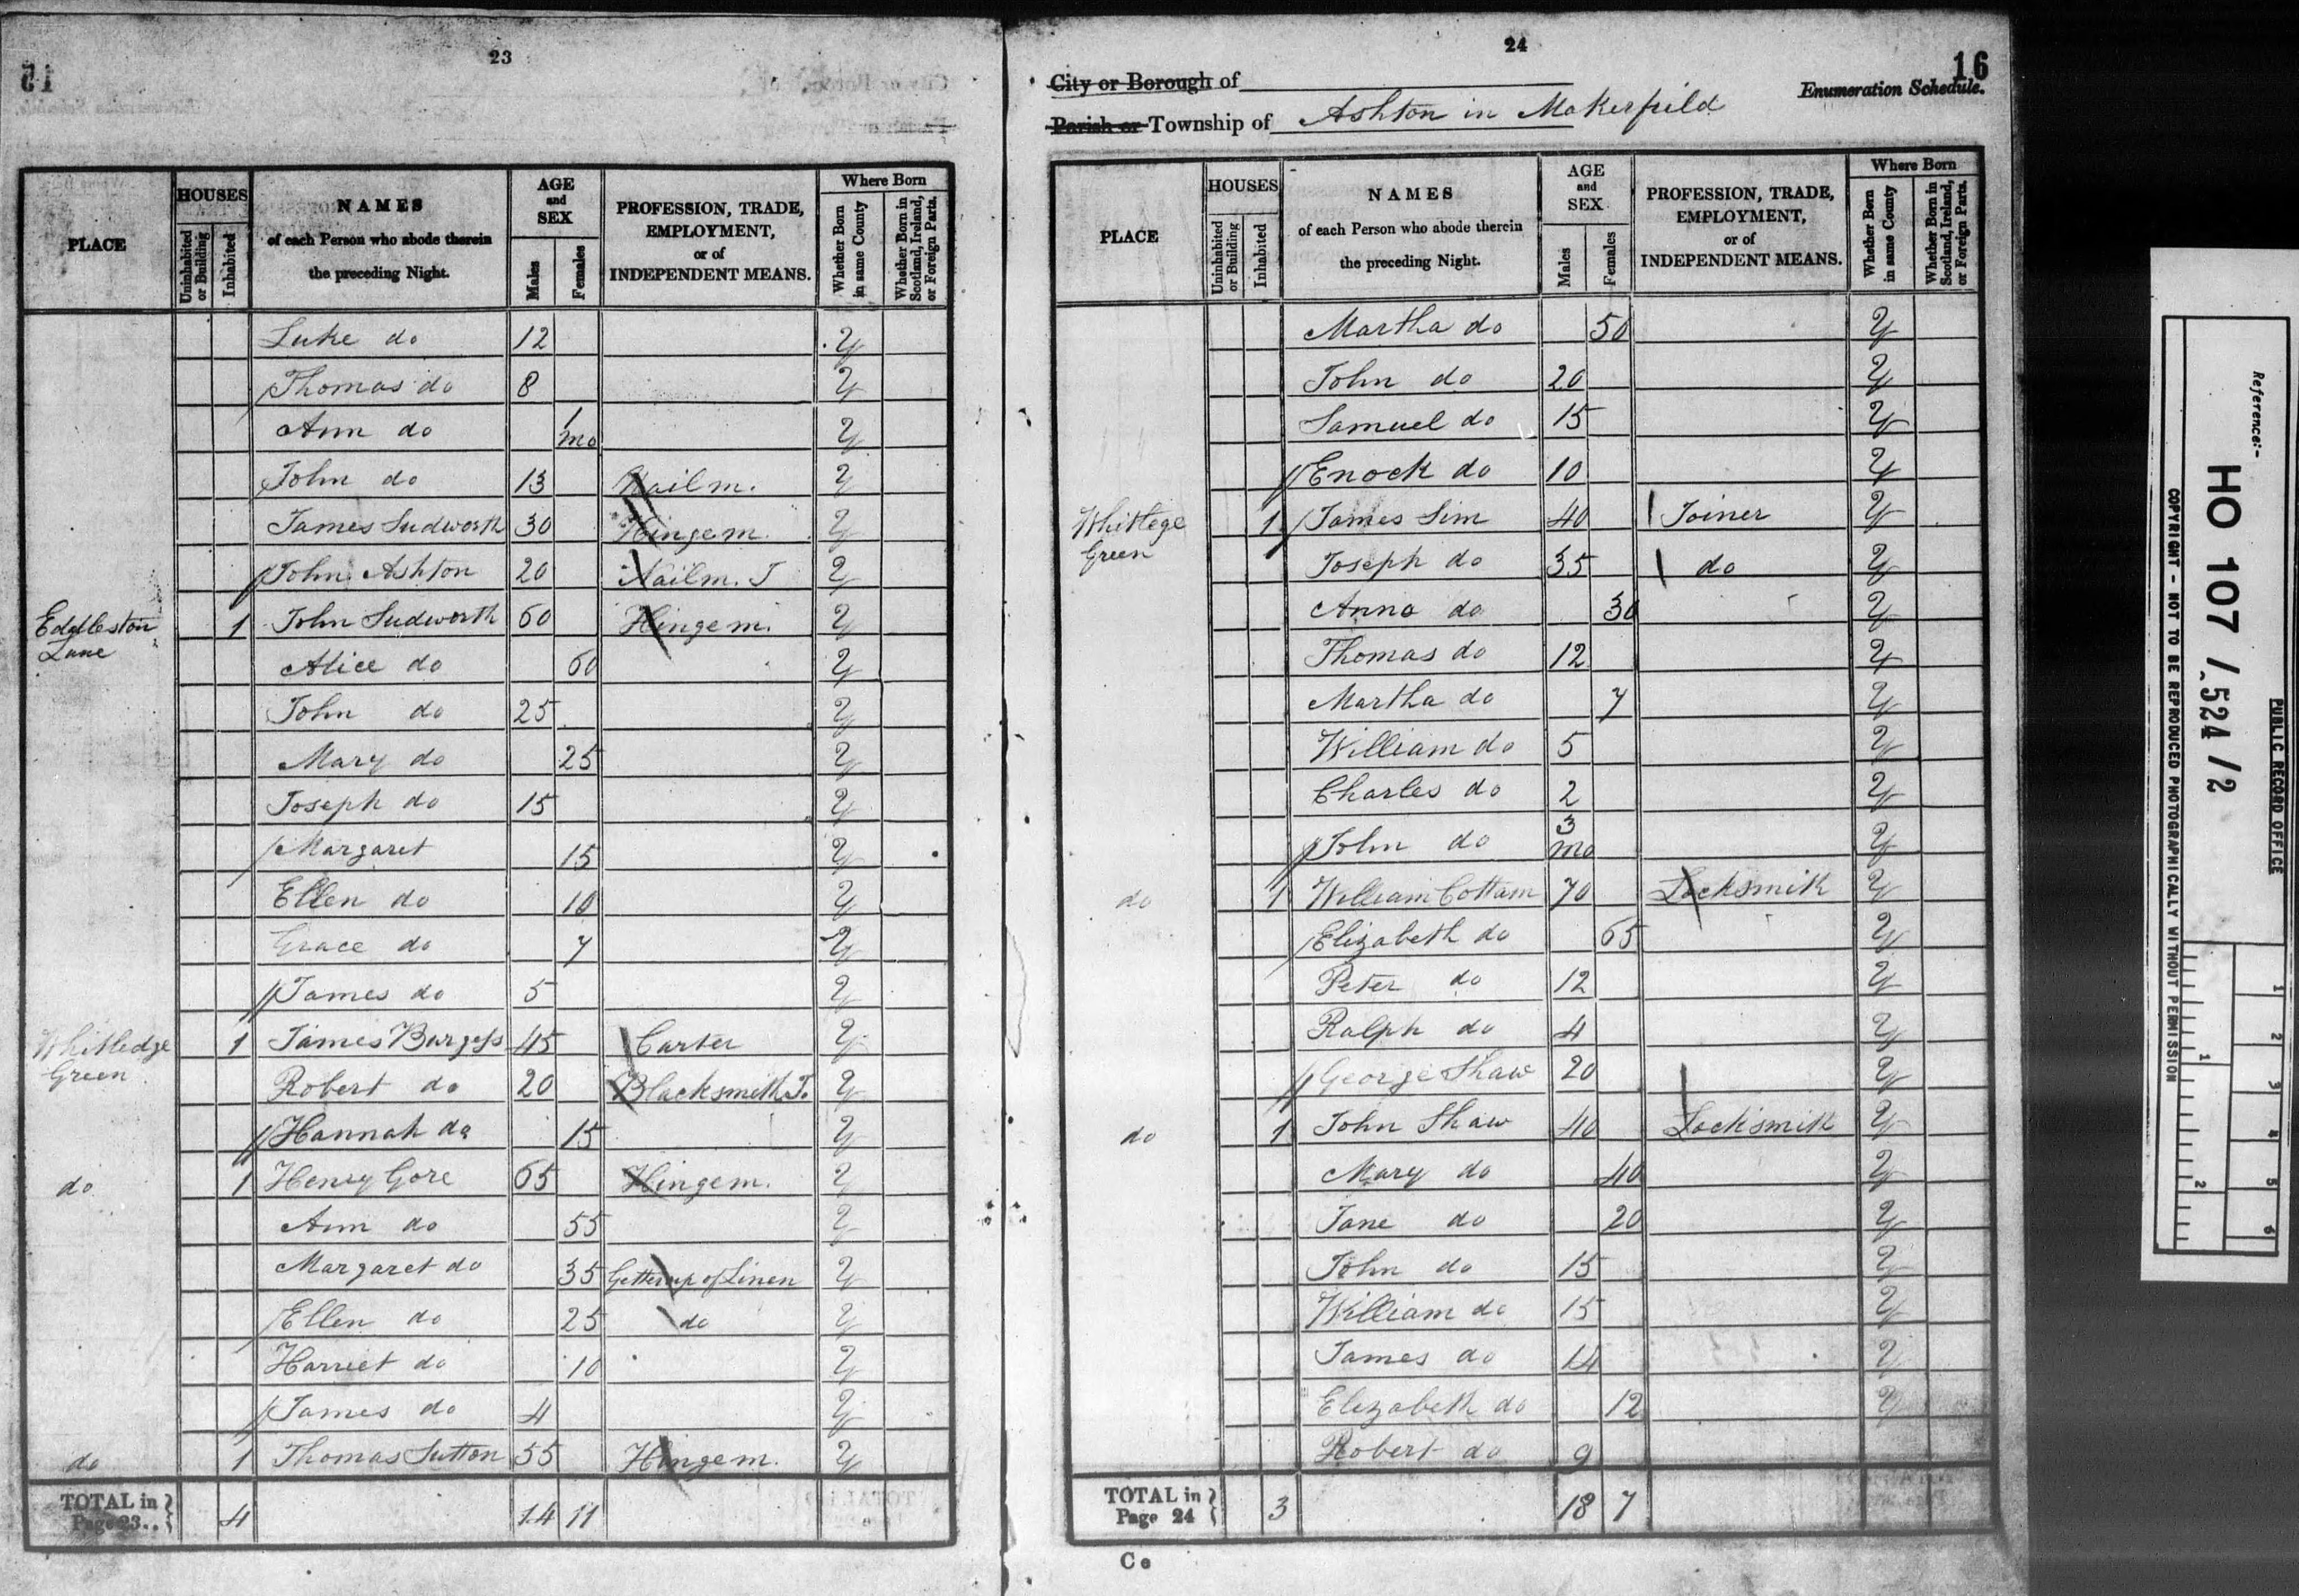 23
PLACE HOUSES NAMES AGE and SEX PROFESSION, TRADE, EMPLOYMENT, or of INDEPENDENT MEANS. Where Born
Uninhabited or Building Inhabited of each Person who abode therein the preceding Night. Males Females Whether Born in same County Whether Born in Scotland, Ireland, or Foreign Parts.
Luke do 12 Y
Thomas do 8 Y
Ann do 1 mo Y
John do 13 Nail m. Y
James Sudworth 30 Hinge m. Y
John Ashton 20 Nail m. J Y
Eddleston Lane 1 John Sudworth 60 Hinge m. Y
Alice do 60 Y
John do 25 Y
Mary do 25 Y
Joseph do 15 Y
Margaret 15 Y
Ellen do 10 Y
Grace do 7 Y
James do 5 Y
Whitledge Green 1 James Burgess 45 Carter Y
Robert do 20 Blacksmith J. Y
Hannah do 15 Y
do 1 Henry Gore 65 Hinge m. Y
Ann do 55 Y
Margaret do 35 Getter up of Linen Y
Ellen do 25 do Y
Harriet do 10 Y
James do 4 Y
do 1 Thomas Sutton 55 Hinge m. Y
TOTAL in Page 23.. 4 14 11
24
16
City or Borough of
Enumeration Schedule.
Parish or Township of Ashton in Makerfield
PLACE HOUSES NAMES AGE and SEX PROFESSION, TRADE, EMPLOYMENT, or of INDEPENDENT MEANS. Where Born
Uninhabited or Building Inhabited of each Person who abode therein the preceding Night. Males Females Whether Born in same County Whether Born in Scotland, Ireland, or Foreign Parts.
Martha do 50 Y
John do 20 Y
Samuel do 15 Y
Enock do 10 Y
Whitlege Green 1 James Sim 40 Joiner Y
Joseph do 35 do Y
Anna do 30 Y
Thomas do 12 Y
Martha do 7 Y
William do 5 Y
Charles do 2 Y
John do 3 mo Y
do 1 William Cottam 70 Locksmith Y
Elizabeth do 65 Y
Peter do 12 Y
Ralph do 4 Y
George Shaw 20 Y
do 1 John Shaw 40 Locksmith Y
Mary do 40 Y
Jane do 20 Y
John do 15 Y
William do 15 Y
James do 14 Y
Elizabeth do 12 Y
Robert do 9
TOTAL in Page 24 3 18 7
C
PUBLIC RECORD OFFICE
Reference:-
HO 107 / 524 / 2
COPYRIGHT - NOT TO BE REPRODUCED PHOTOGRAPHICALLY WITHOUT PERMISSION
1 2 3 4 5 6
1 2